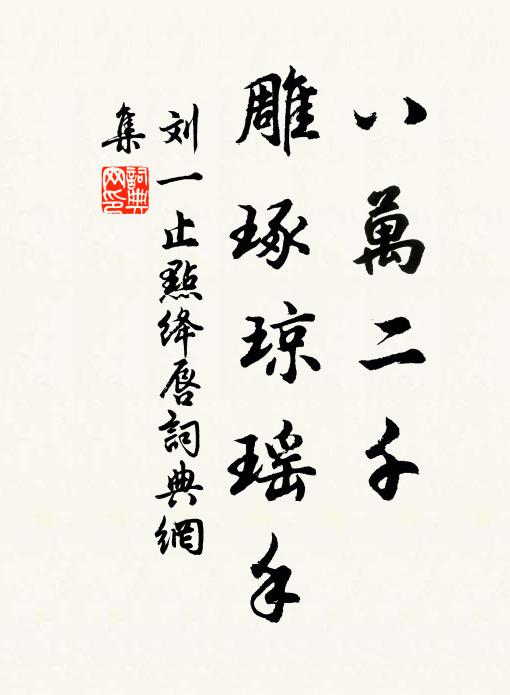 八萬二千
雕琢琼瑶手
刘一止點绛唇詞典網
集
詞典
网印